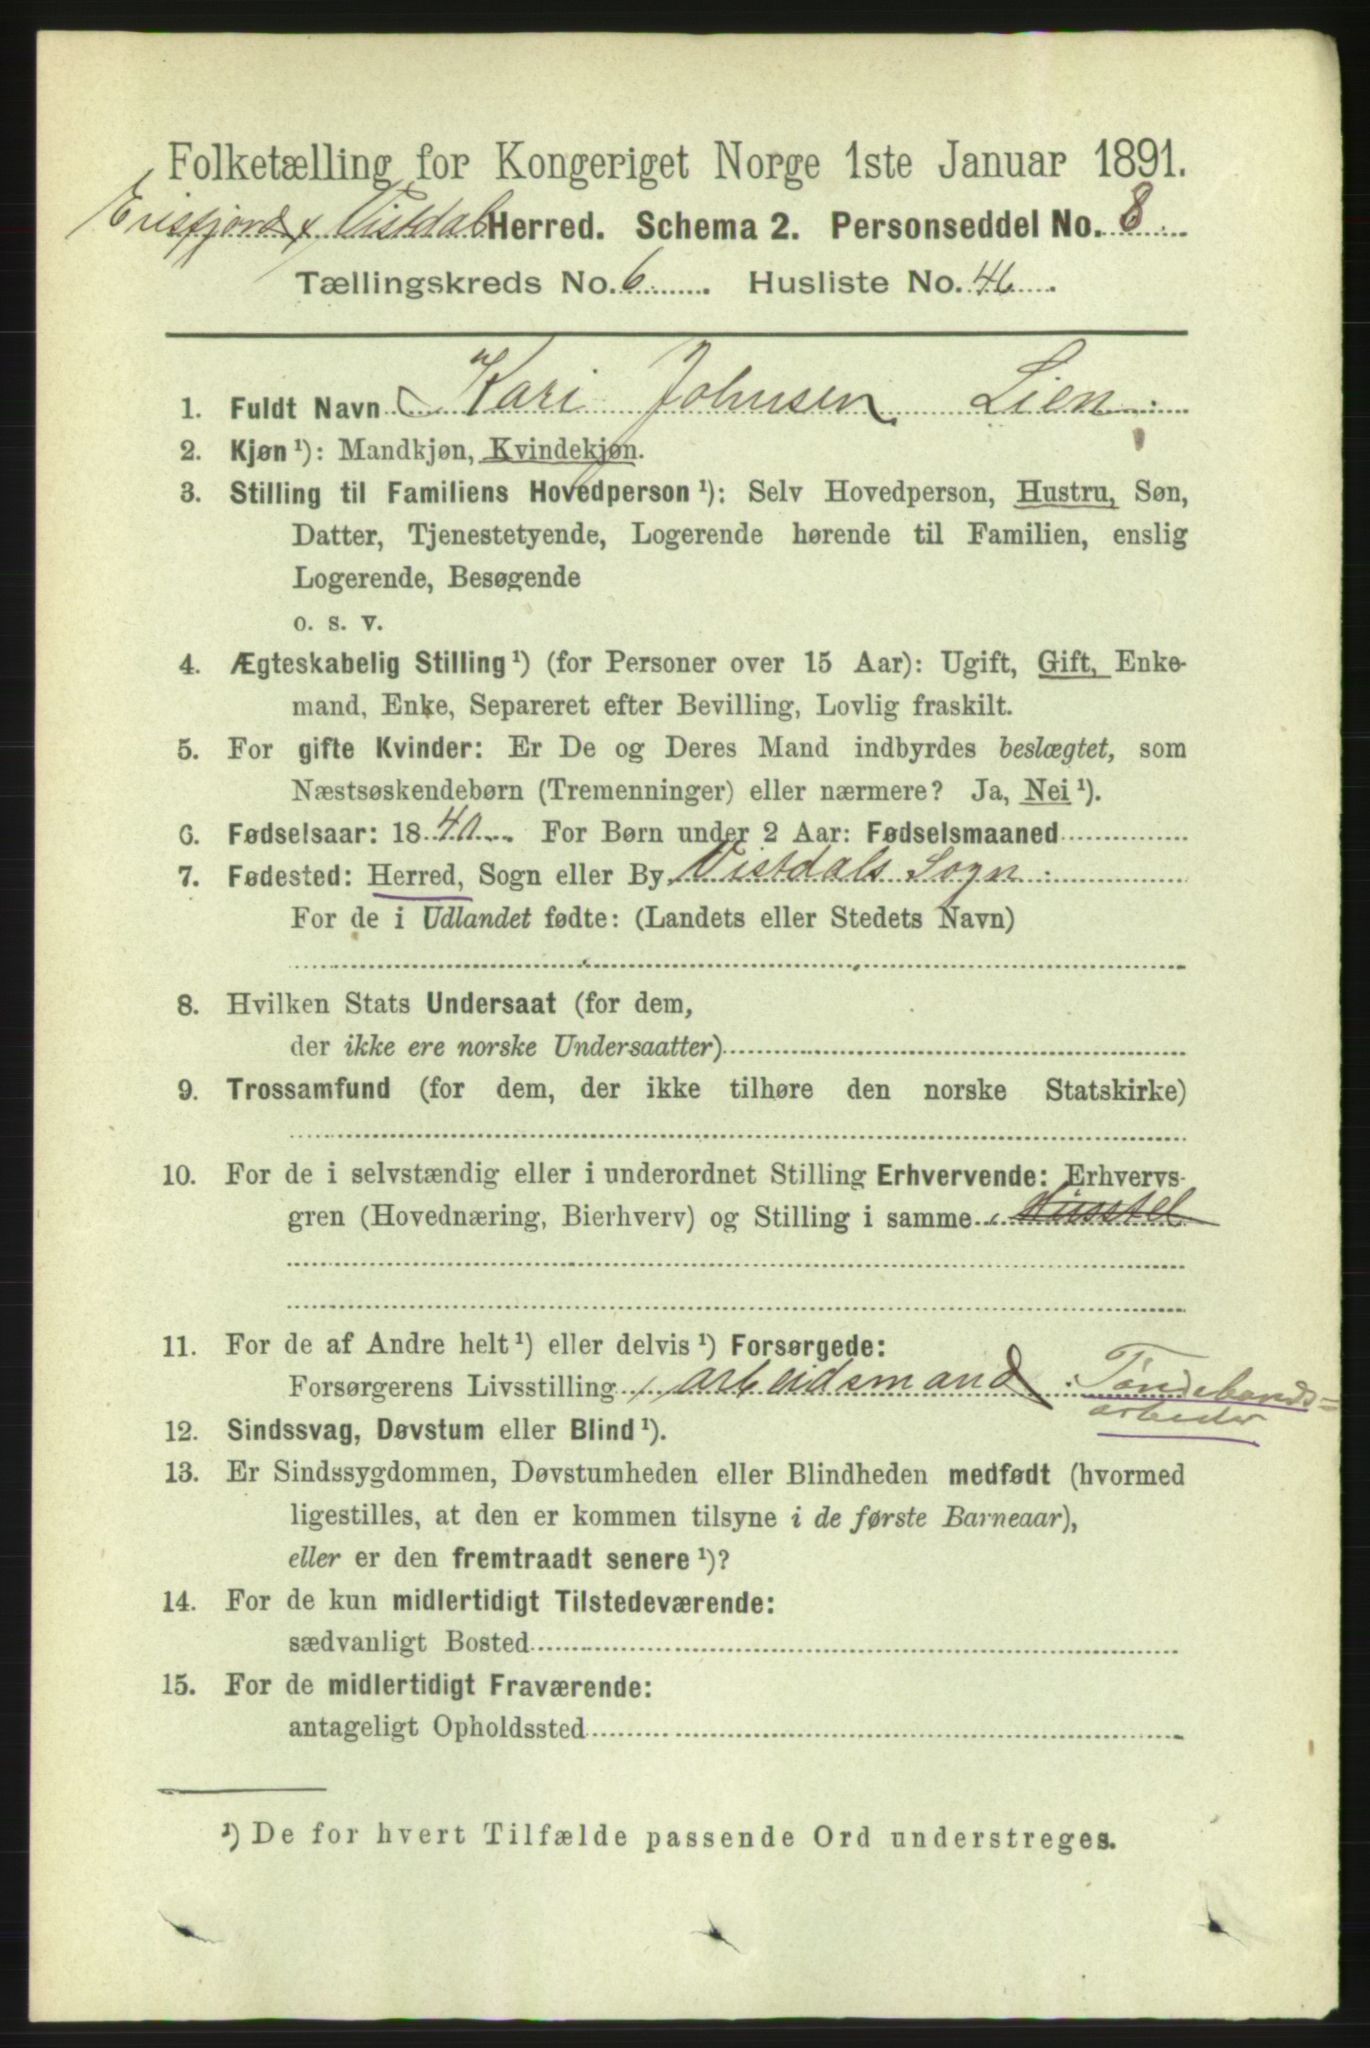 Folketælling for Kongeriget Norge 1ste Januar 1891.
Erisfjord & Vistdal Herred. Schema 2. Personseddel No. 8
Tællingskreds No. 6 Husliste No. 46.
1. Fuldt Navn Kari Johnsen Lien
2. Kjøn ¹): Mandkjøn, Kvindekjøn.
3. Stilling til Familiens Hovedperson ¹): Selv Hovedperson, Hustru, Søn,
Datter, Tjenestetyende, Logerende hørende til Familien, enslig
Logerende, Besøgende
o. s. v.
4. Ægteskabelig Stilling ¹) (for Personer over 15 Aar): Ugift, Gift, Enke-
mand, Enke, Separeret efter Bevilling, Lovlig fraskilt.
5. For gifte Kvinder: Er De og Deres Mand indbyrdes beslægtet, som
Næstsøskendebørn (Tremenninger) eller nærmere? Ja, Nei ¹).
6. Fødselsaar: 1840 For Børn under 2 Aar: Fødselsmaaned
7. Fødested: Herred, Sogn eller By Vistdals Sogn
For de i Udlandet fødte: (Landets eller Stedets Navn)
8. Hvilken Stats Undersaat (for dem,
der ikke ere norske Undersaatter)
9. Trossamfund (for dem, der ikke tilhøre den norske Statskirke)
10. For de i selvstændig eller i underordnet Stilling Erhvervende: Erhvervs-
gren (Hovednæring, Bierhverv) og Stilling i samme Husstel
11. For de af Andre helt ¹) eller delvis ¹) Forsørgede:
Forsørgerens Livsstilling arbeidsmand Tøndebands=
arbeider
12. Sindssvag, Døvstum eller Blind ¹).
13. Er Sindssygdommen, Døvstumheden eller Blindheden medfødt (hvormed
ligestilles, at den er kommen tilsyne i de første Barneaar),
eller er den fremtraadt senere ¹)?
14. For de kun midlertidigt Tilstedeværende:
sædvanligt Bosted
15. For de midlertidigt Fraværende:
antageligt Opholdssted
¹) De for hvert Tilfælde passende Ord understreges.